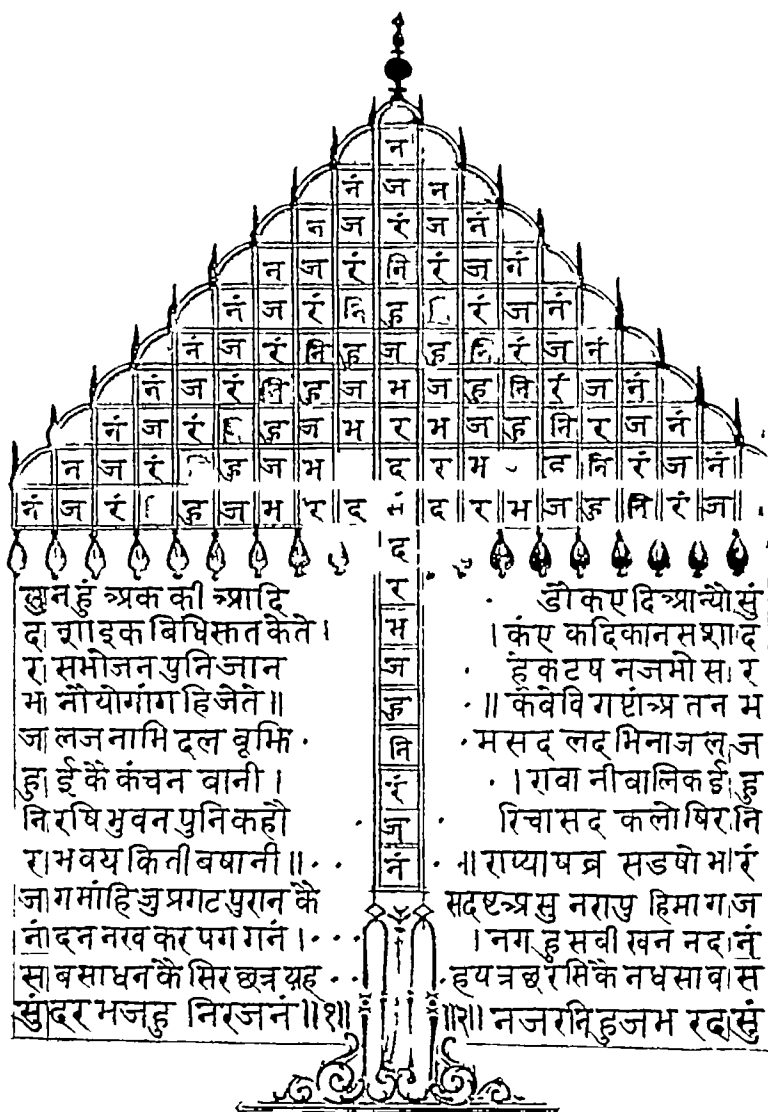 न
नं ज न
न ज रं ज नं
न ज रं नि रं ज नं
नं ज रं नि ह रं ज नं
नं ज रं नि ह ज ह नि रं ज नं
नं ज रं नि हु ज भ ज हु नि रं ज नं
नं ज रं हु ज भ र भ ज हु नि र ज नं
नं ज रं हु ज भ द र भ ह नि रं ज नं
नं ज रं हु ज भ र द सं द र भ ज हु नि रं ज
द
र
भ
ज
हु
नि
रं
ज
नं
सुनहुं अकक की आदि
द शाइक बिधि सकत केते।
र सभोजन पुनि जान
भ नौं योगांग हि जेते॥
ज लज नाभि दल बूझि
हु ई कै कंचन बानी।
नि रषि भुवन पुनि कहौ
र भवय किती बषानी॥
ज ग मांहि जु प्रगट पुरान कै
नं दन नख कर पग गनं।
स ब साधन कै सिर छत्र यह
सुंदर भजहु निरजनं॥१॥
डौ क ए दि आन्यौ सुं
।कं ए कदिकान स शा द
हं क ट ष नजमो स र
॥कवेवि गष्टांअ तन भ
मसद लद भिनाज ल ज
।रावा नी बालिक ई हु
रिचा सद कलोषिर नि
॥राप्याष ब्र सडषो भ रं
सदष्टअ सु नरापु हिमा ग ज
।नग हु सबी खन नद नं
हय त्रछ रसिकै नधसाब स
॥२॥ नजरनि हुजभ रद सुं